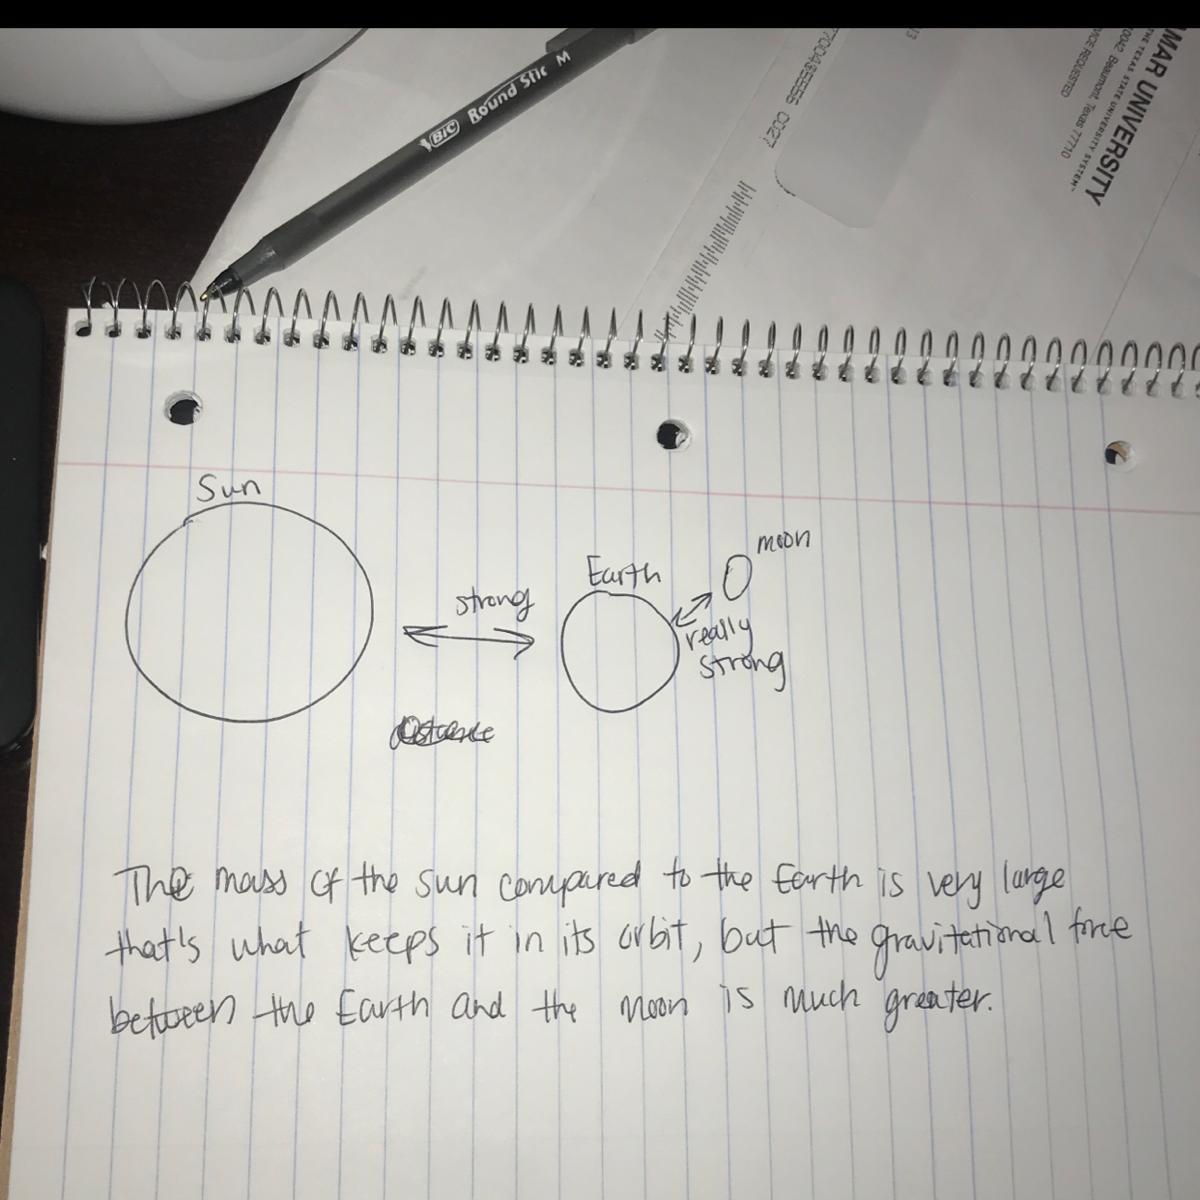 BIC Round Stic M
77004@5556 C027
MAR UNIVERSITY
THE TEXAS STATE UNIVERSITY SYSTEM™
Beaumont, Texas 77710
VICE REQUESTED
Sun
strong
Earth
moon
really
strong
The mass of the sun compared to the Earth is very large
that's what keeps it in its orbit, but the gravitational force
between the Earth and the Moon is much greater.